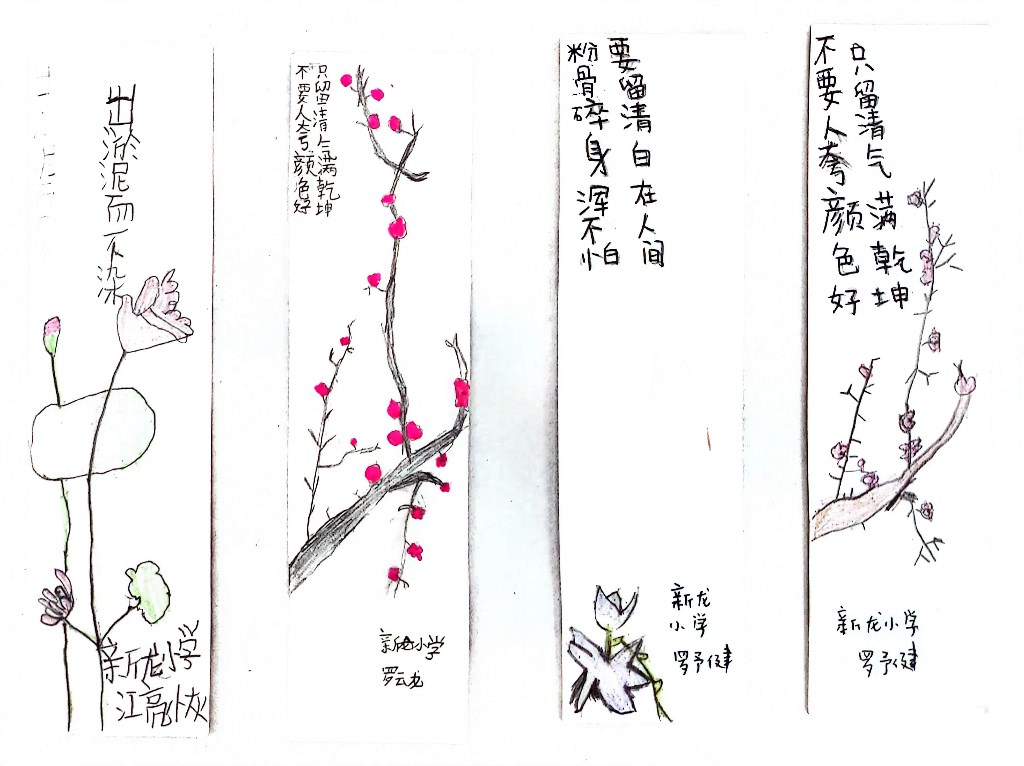 出淤泥而不染
新龙小学
只留清气满乾坤
不要人夸颜色好
新龙小学
罗云龙
要留清白在人间
粉骨碎身浑不怕
新龙
小学
罗予健
只留清气满乾坤
不要人夸颜色好
新龙小学
罗予健